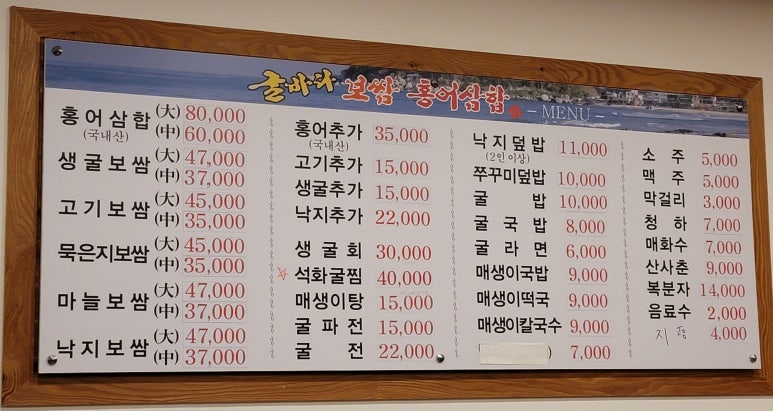 굴바다 보쌈 홍어삼합 - MENU -
홍어삼합 (大) 80,000
(국내산) (中) 60,000
생굴보쌈 (大) 47,000
(中) 37,000
고기보쌈 (大) 45,000
(中) 35,000
묵은지보쌈 (大) 45,000
(中) 35,000
마늘보쌈 (大) 47,000
(中) 37,000
낙지보쌈 (大) 47,000
(中) 37,000
홍어추가 35,000
(국내산)
고기추가 15,000
생굴추가 15,000
낙지추가 22,000
생굴회 30,000
☆석화굴찜 40,000
매생이탕 15,000
굴파전 15,000
굴전 22,000
낙지덮밥 11,000
(2인 이상)
쭈꾸미덮밥 10,000
굴밥 10,000
굴국밥 8,000
굴라면 6,000
매생이국밥 9,000
매생이떡국 9,000
매생이칼국수 9,000
) 7,000
소주 5,000
맥주 5,000
막걸리 3,000
청하 7,000
매화수 7,000
산사춘 9,000
복분자 14,000
음료수 2,000
지평 4,000